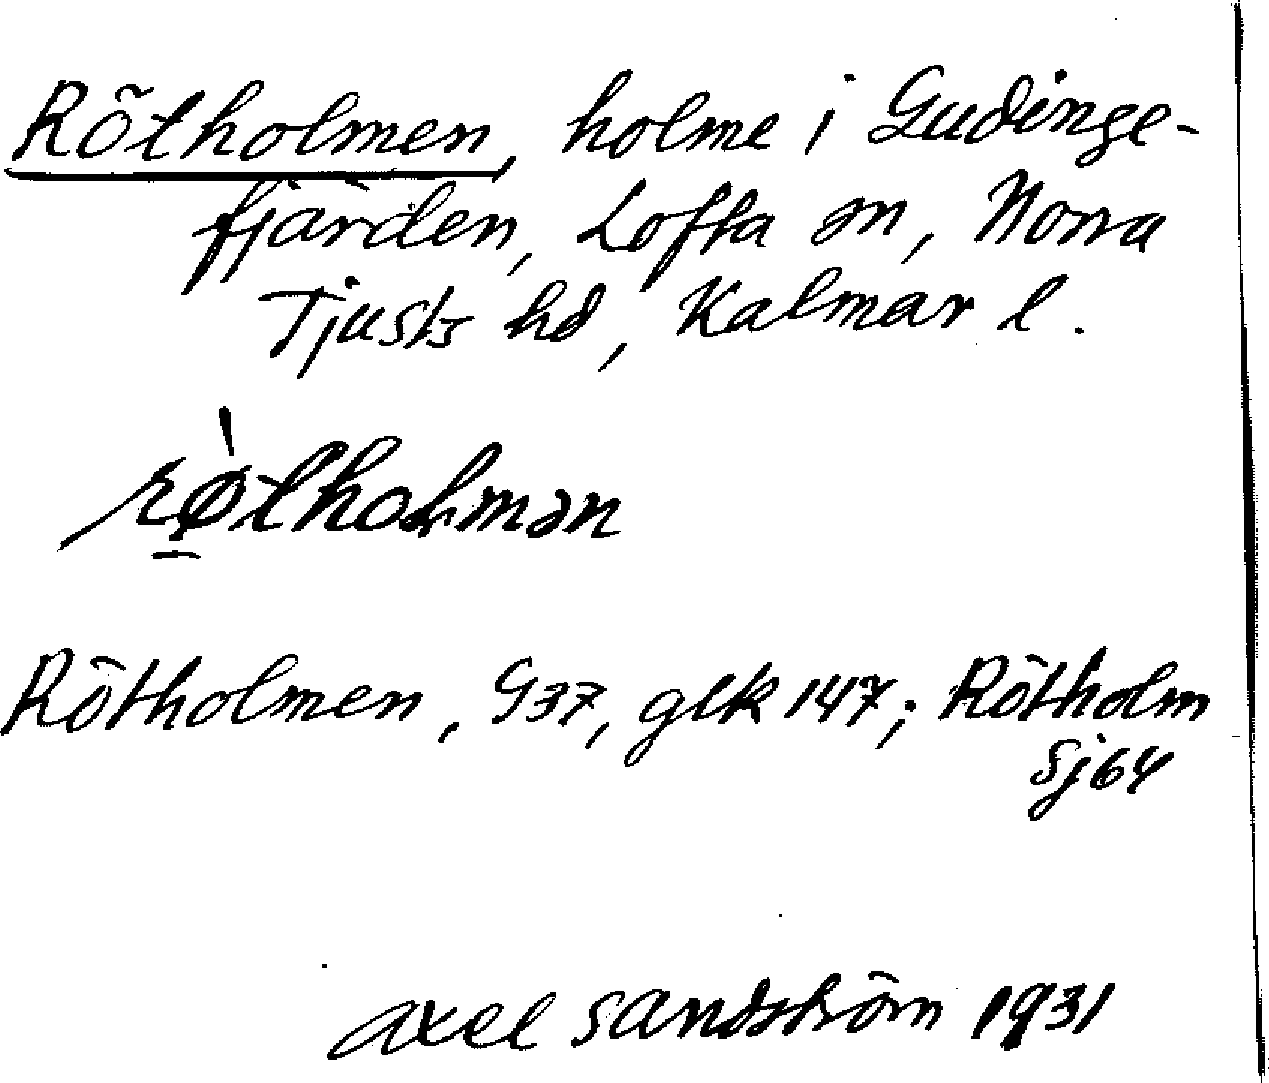 Rötholmen, holme i Gudinge-
fjärden, Lofta sn, Norra
Tjusts hd, Kalmar l.
rø̀tholmən
Rötholmen, G37, glk 147; Rötholm
Sj64
Axel Sandström 1931